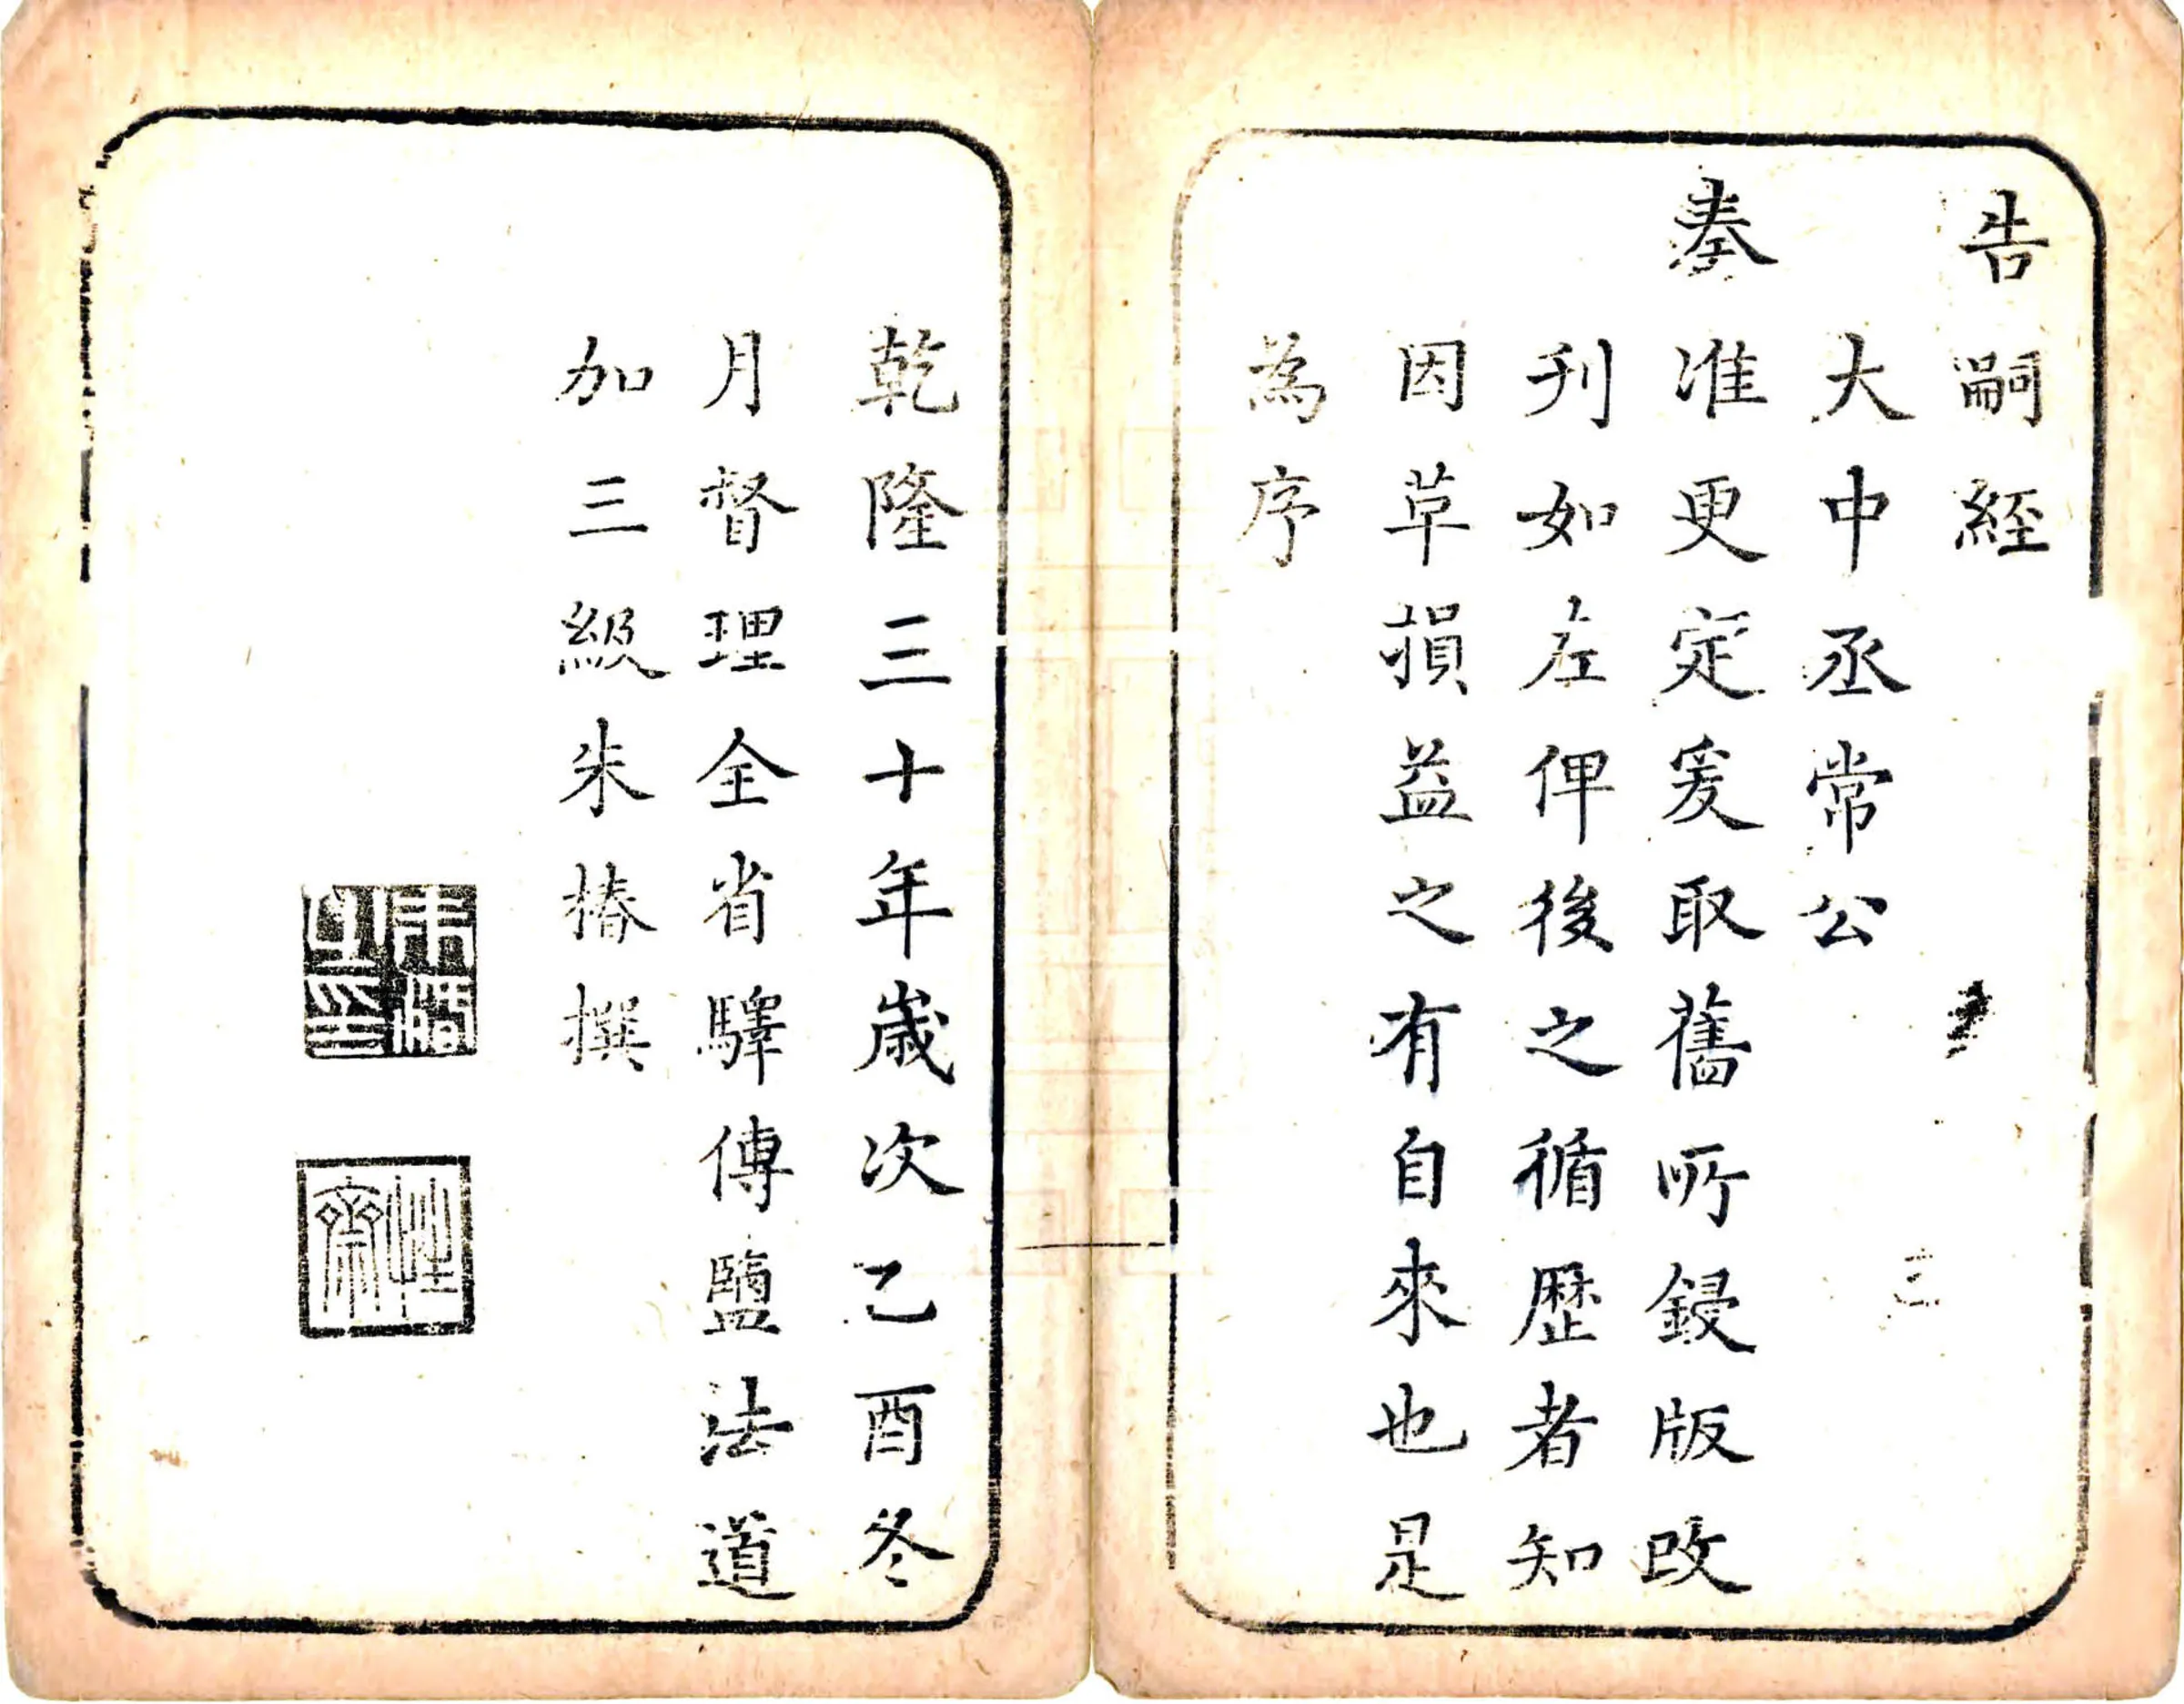 告嗣經
大中丞常公
奏准更定爰取舊所鋟版改
刊如左俾後之循歷者知
因革損益之有自來也是
為序
乾隆三十年歲次乙酉冬
月督理全省驛傳鹽法道
加三級朱椿撰
朱椿之印
性齋